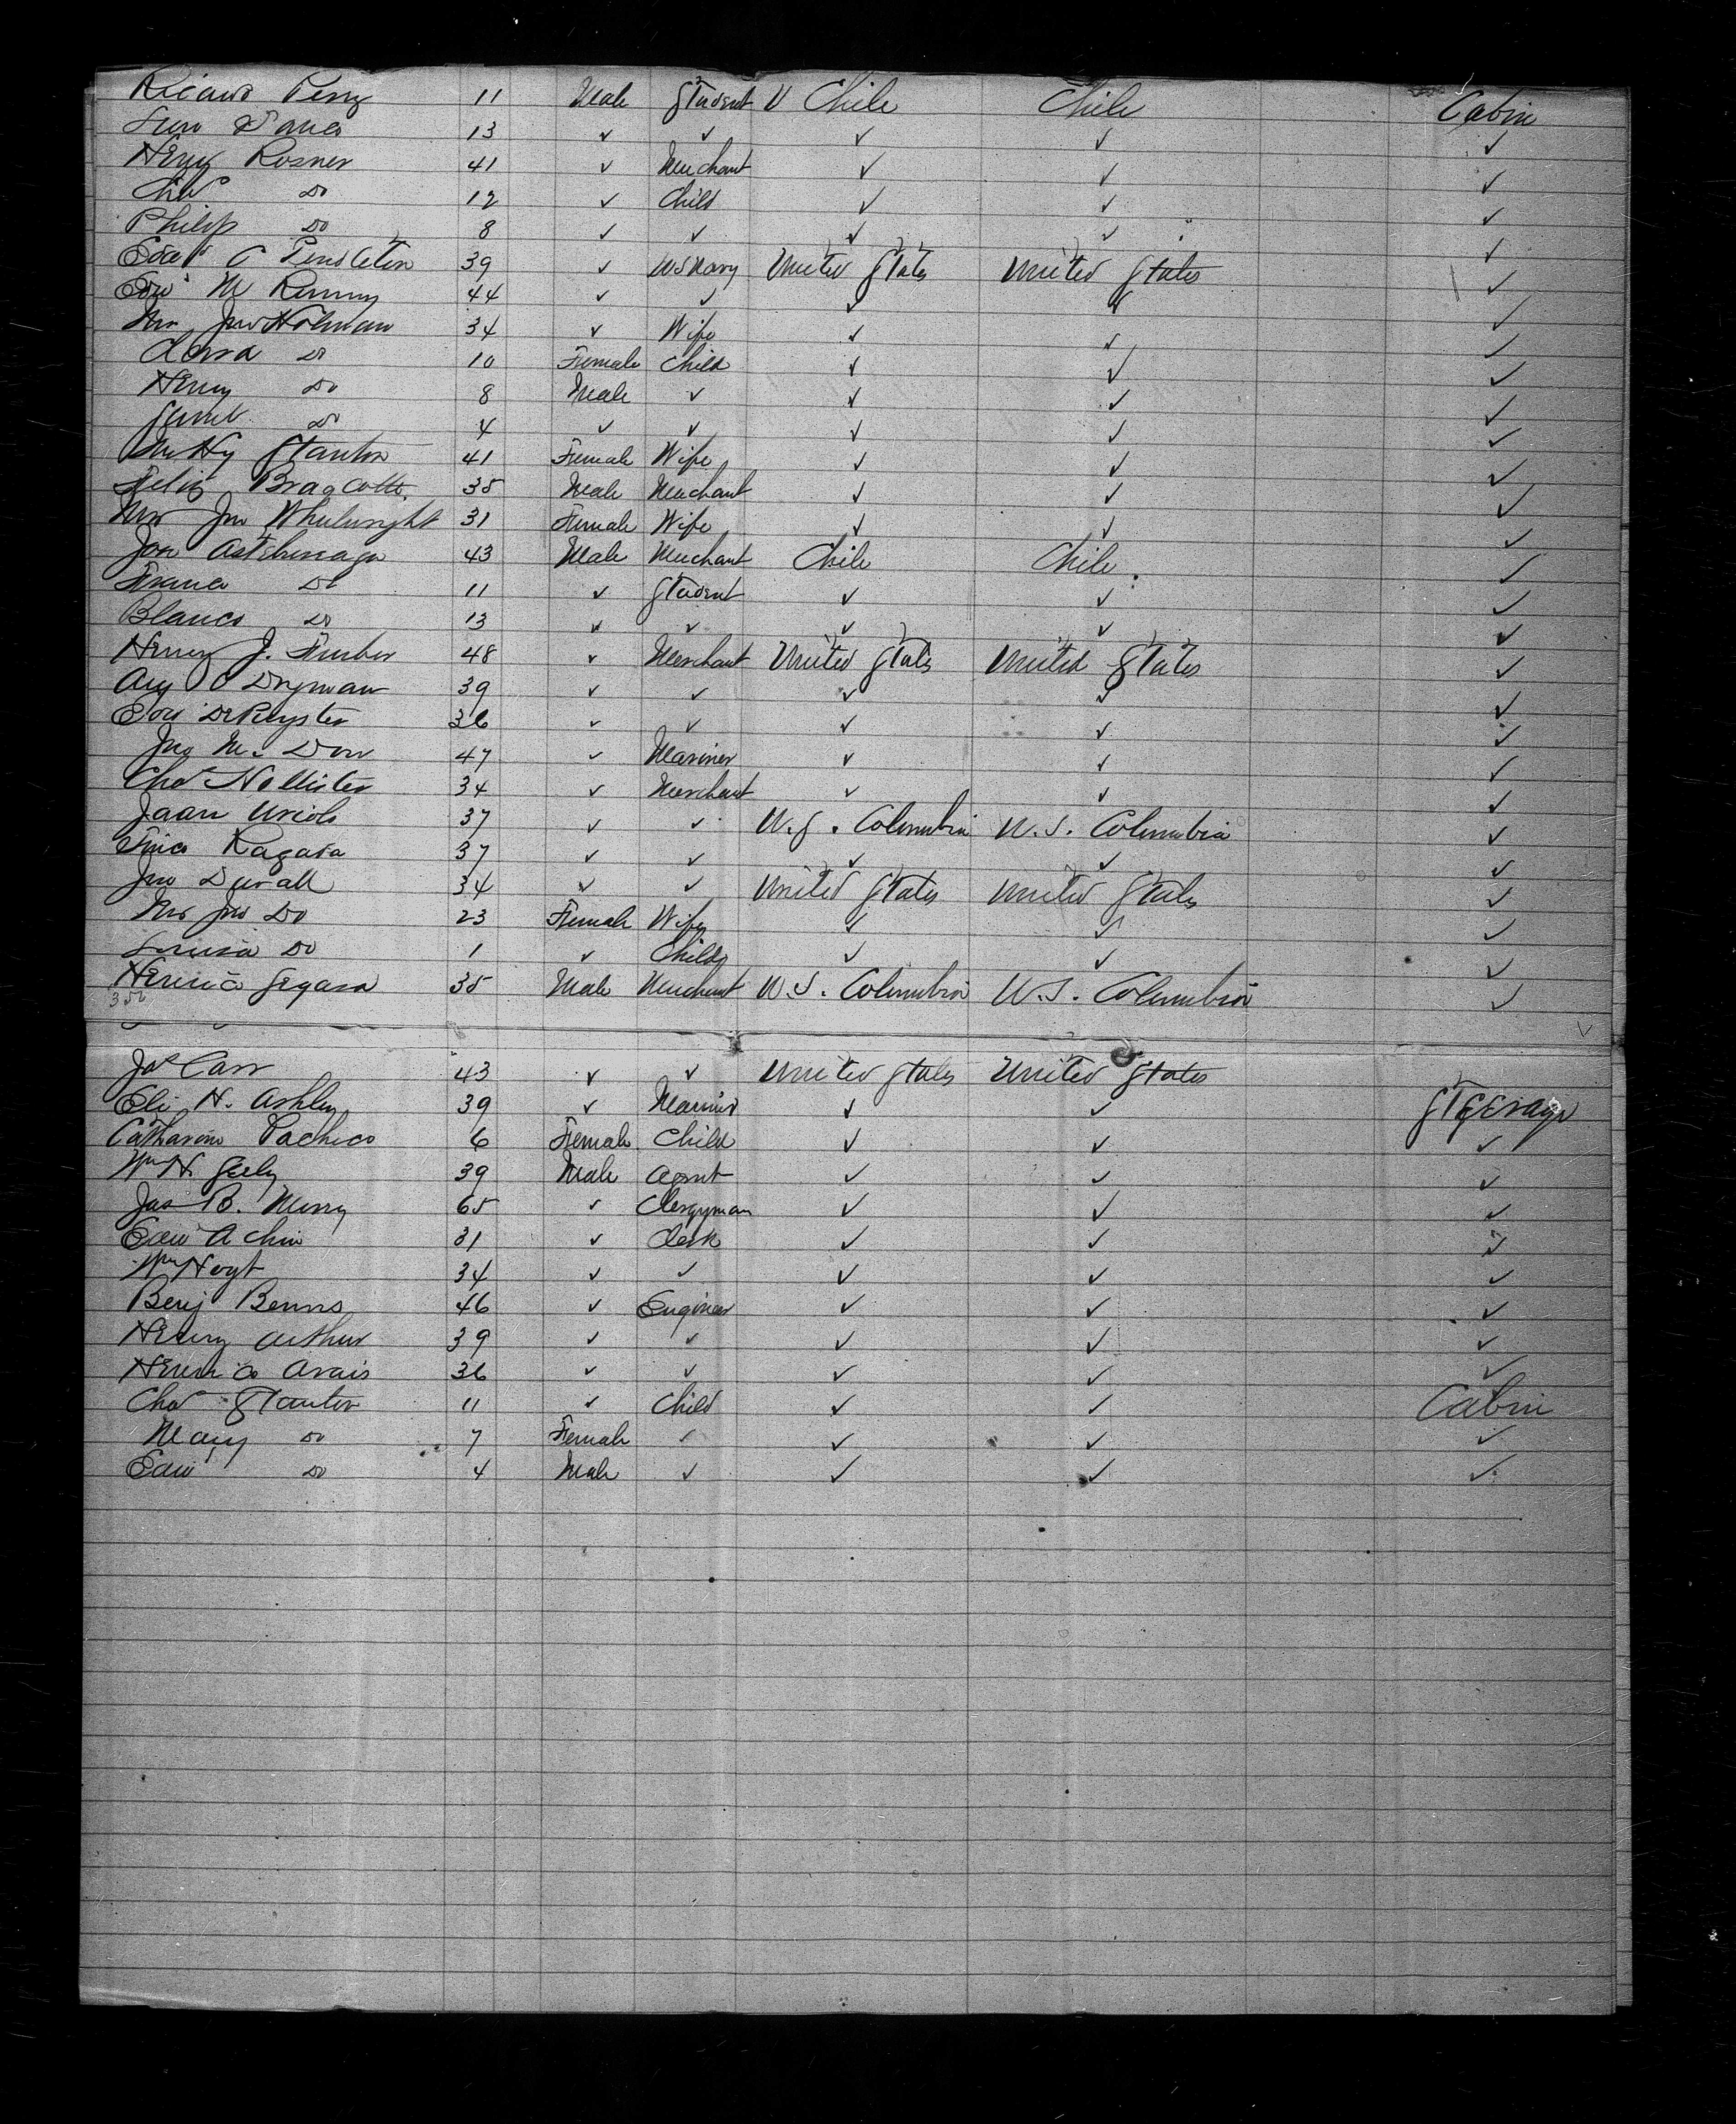 Ricardo Perry 11 Male Student V Chile Chile Cabin
13 ✓ ✓ ✓ ✓ ✓
Henry Rosner 41 ✓ Merchant ✓ ✓ ✓
Chas Do 12 ✓ Child ✓ ✓ ✓
Philip Do 8 ✓ ✓ ✓ ✓ ✓
Edwd C Pendleton 39 ✓ US Navy United States United States ✓
Edwd M Kenny 44 ✓ ✓ ✓ ✓ ✓
Mrs Jno Holman 34 ✓ Wife ✓ ✓ ✓
Do 10 Female Child ✓ ✓ ✓
Henry Do 8 Male ✓ ✓ ✓ ✓
Do 4 ✓ ✓ ✓ ✓ ✓
Mrs Hy Stanton 41 Female Wife ✓ ✓ ✓
Felix Bragcotte 35 Male Merchant ✓ ✓ ✓
Mrs Jno Whulwright 31 Female Wife ✓ ✓ ✓
43 Male Merchant Chile Chile ✓
Do 11 ✓ Student ✓ ✓ ✓
Blanco Do 13 ✓ ✓ ✓ ✓ ✓
Henry J. Furber 48 ✓ Merchant United States United States ✓
Aug O Dryman 39 ✓ ✓ ✓ ✓ ✓
Edw DePeyster 36 ✓ ✓ ✓ ✓ ✓
Jno M. Dow 47 ✓ Mariner ✓ ✓ ✓
Chas Hollister 34 ✓ Merchant ✓ ✓ ✓
Juan Uriols 37 ✓ ✓ U.S. Columbia U.S. Columbia ✓
Ragasa 37 ✓ ✓ ✓ ✓ ✓
Jno Duvall 34 ✓ ✓ United States United States ✓
Mrs Jno Do 23 Female Wife ✓ ✓ ✓
Louisa Do 1 ✓ Child ✓ ✓ ✓
Henrico Segara 35 Male Merchant U.S. Columbia U.S. Columbia ✓
352
Jas Carr 43 ✓ ✓ United States United States
Eli H. Ashley 39 ✓ Mariner ✓ ✓ Steerage
Catharine Pacheco 6 Female Child ✓ ✓ ✓
Wm H. Seely 39 Male Agent ✓ ✓ ✓
Jas B. Merry 65 ✓ Clergyman ✓ ✓ ✓
Edw A Chin 31 ✓ Clerk ✓ ✓ ✓
Wm Hoyt 34 ✓ ✓ ✓ ✓ ✓
Benj Benns 46 ✓ Engineer ✓ ✓ ✓
Henry Arthur 39 ✓ ✓ ✓ ✓ ✓
Henrico Arais 36 ✓ ✓ ✓ ✓ ✓
Chas Stanton 11 ✓ Child ✓ ✓ Cabin
Mary Do 7 Female ✓ ✓ ✓ ✓
Edw Do 4 Male ✓ ✓ ✓ ✓